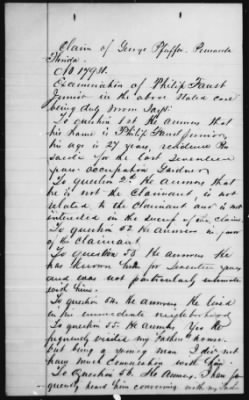 Claim of George Pfeiffer Pensacola
Florida
No 17931.
Examination of Philip Faust
Junior in the above stated case
being duly sworn says.
To question 1st he answers that
his name is Philip Faust Junior,
his age is 27 years, residence Pen
sacola for the last Seventeen
years. occupation Gardner
To question 2d he answers that
he is not the Claimant is not
related to the Claimant and is not
interested in the success of the claim.
To question 52 he answers in favor
of the Claimant
To question 53 he answers he
has known him for Seventeen years
and was not particularly intimate
with him.
To question 54. he answers he lived
in his immediate neighborhood
To question 55. he answers Yes he
frequently visited my Father's home.
but being a young man I did not
have much conversation with him.
To question 56. He answers. I have fre
quently heard him conversing with my Father